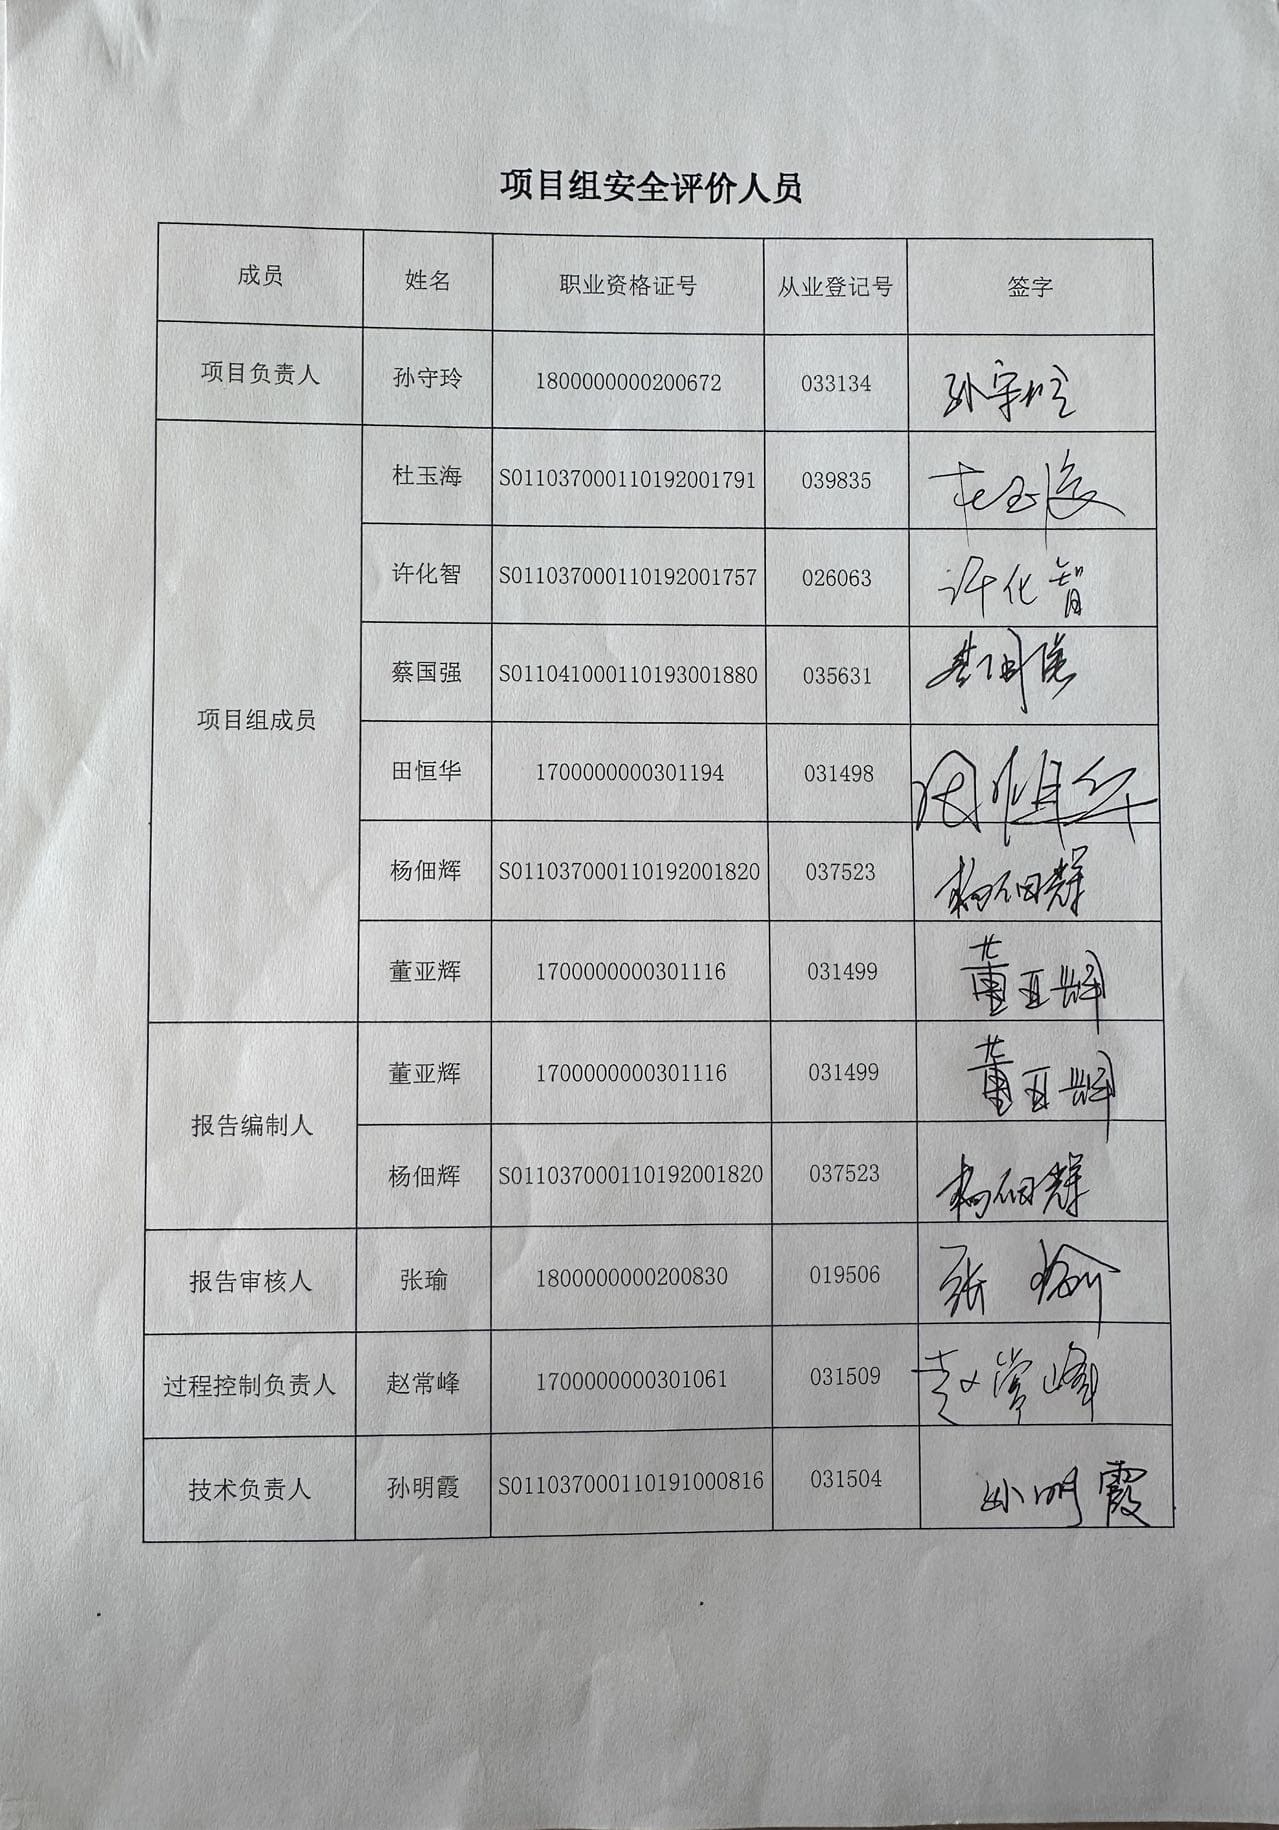 项目组安全评价人员
成员 姓名 职业资格证号 从业登记号 签字
项目负责人 孙守玲 1800000000200672 033134 孙守玲
项目组成员
杜玉海 S011037000110192001791 039835 杜玉海
许化智 S011037000110192001757 026063 许化智
蔡国强 S011041000110193001880 035631 蔡国强
田恒华 1700000000301194 031498 田恒华
杨佃辉 S011037000110192001820 037523 杨佃辉
董亚辉 1700000000301116 031499 董亚辉
报告编制人
董亚辉 1700000000301116 031499 董亚辉
杨佃辉 S011037000110192001820 037523 杨佃辉
报告审核人 张瑜 1800000000200830 019506 张瑜
过程控制负责人 赵常峰 1700000000301061 031509 赵常峰
技术负责人 孙明霞 S011037000110191000816 031504 孙明霞